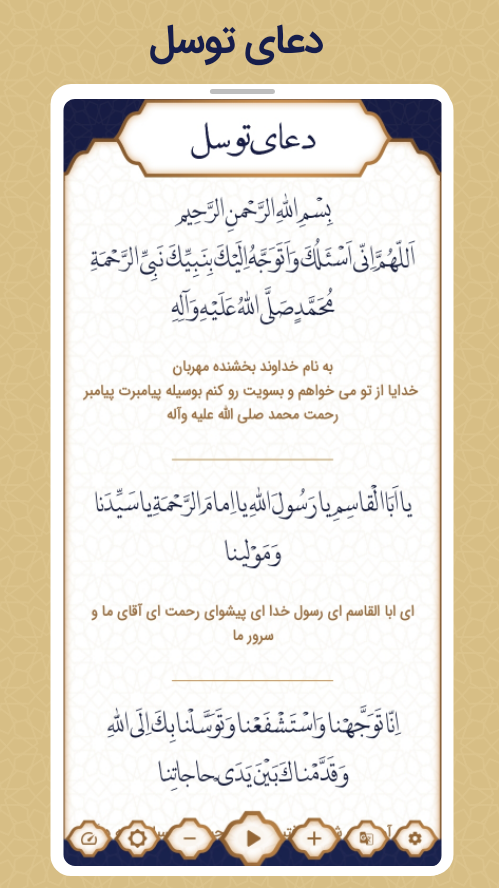 دعای توسل
دعای توسل
بِسْمِ اللهِ الرَّحْمنِ الرَّحِيمِ
اَللّهُمَّ اِنّی اَسْئَلُكَ وَ اَتَوَجَّهُ اِلَيْكَ بِنَبِيِّكَ نَبِیِّ الرَّحْمَةِ
مُحَمَّدٍ صَلَّی اللهُ عَلَيْهِ وَ آلِهِ
به نام خداوند بخشنده مهربان
خدایا از تو می خواهم و بسویت رو کنم بوسیله پیامبرت پیامبر
رحمت محمد صلی الله علیه وآله
یا اَبَا الْقاسِمِ یا رَسُولَ اللهِ یا اِمامَ الرَّحْمَةِ یا سَیِّدَنا
وَ مَوْلینا
ای ابا القاسم ای رسول خدا ای پیشوای رحمت ای آقای ما و
سرور ما
اِنّا تَوَجَّهْنا وَ اسْتَشْفَعْنا وَ تَوَسَّلْنا بِكَ اِلَی اللهِ
وَ قَدَّمْناكَ بَيْنَ يَدَیْ حاجاتِنا